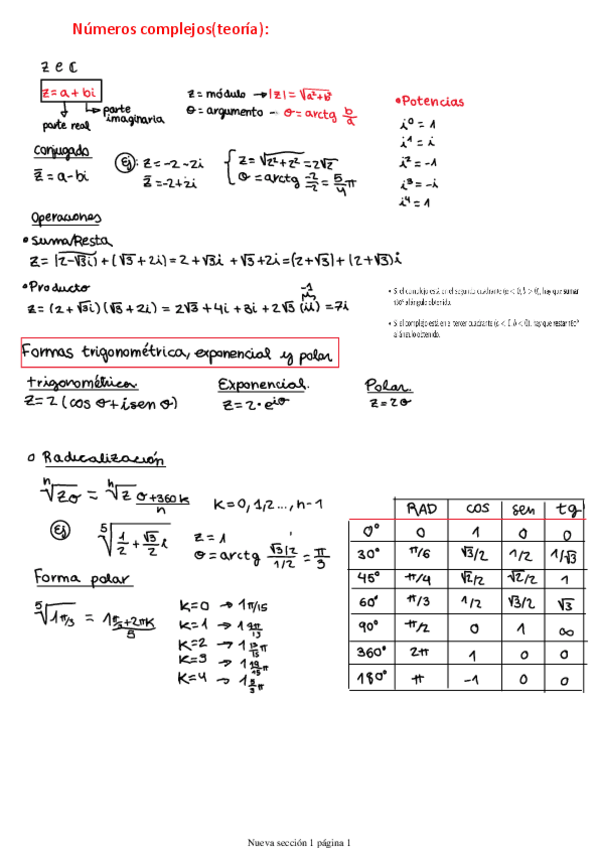 Números complejos(teoría):
z ∈ ℂ
z = a + bi
parte real
parte imaginaria
z = módulo → |z| = √a²+b²
θ = argumento → θ = arctg b/a
• Potencias
i⁰ = 1
i¹ = i
i² = -1
i³ = -i
i⁴ = 1
Conjugado
z̄ = a-bi
Ej: z = -2 -2i
z̄ = -2+2i
z = √2²+2² = 2√2
θ = arctg -2/-2 = 5/4 π
Operaciones
• Suma/Resta
z = (2-√3i) + (√3 + 2i) = 2 + √3i + √3 + 2i = (2+√3) + (2+√3)i
• Producto
-1
z = (2 + √3i)(√3 + 2i) = 2√3 + 4i + 3i + 2√3 (ii) = 7i
• Si el complejo está en el segundo cuadrante (a < 0, b > 0), hay que sumar
180º al ángulo obtenido.
• Si el complejo está en el tercer cuadrante (a < 0, b < 0), hay que restar 180º
al ángulo obtenido.
Formas trigonométrica, exponencial y polar
trigonométrica
z = 2 (cos θ + i sen θ)
Exponencial.
z = 2 · e^iθ
Polar.
z = 2θ
o Radicalización
ⁿ√zσ = ⁿ√z σ+360k/n
k = 0, 1, 2 ..., n-1
Ej
⁵√1/2 + √3/2 i
z = 1
θ = arctg √3/2 / 1/2 = π/3
Forma polar
⁵√1π/3 = 1 π/3+2πk/5
k=0 → 1π/15
k=1 → 1
k=2 → 1 13/15 π
k=3 → 1 19/15 π
k=4 → 1 5/3 π
RAD cos sen tg
0° 0 1 0 0
30° π/6 √3/2 1/2 1/√3
45° π/4 √2/2 √2/2 1
60° π/3 1/2 √3/2 √3
90° π/2 0 1 ∞
360° 2π 1 0 0
180° π -1 0 0
Nueva sección 1 página 1